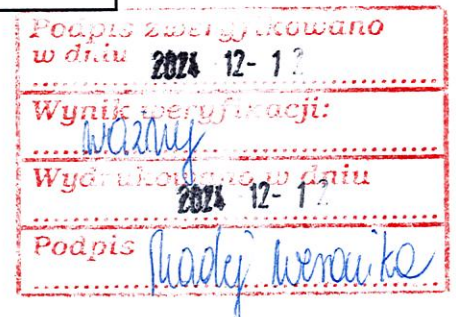 Podpis zweryfikowano
w dniu 2024 12- 12
Wynik weryfikacji:
ważny
Wydrukowano w dniu
2024 12- 12
Podpis Madej Weronika